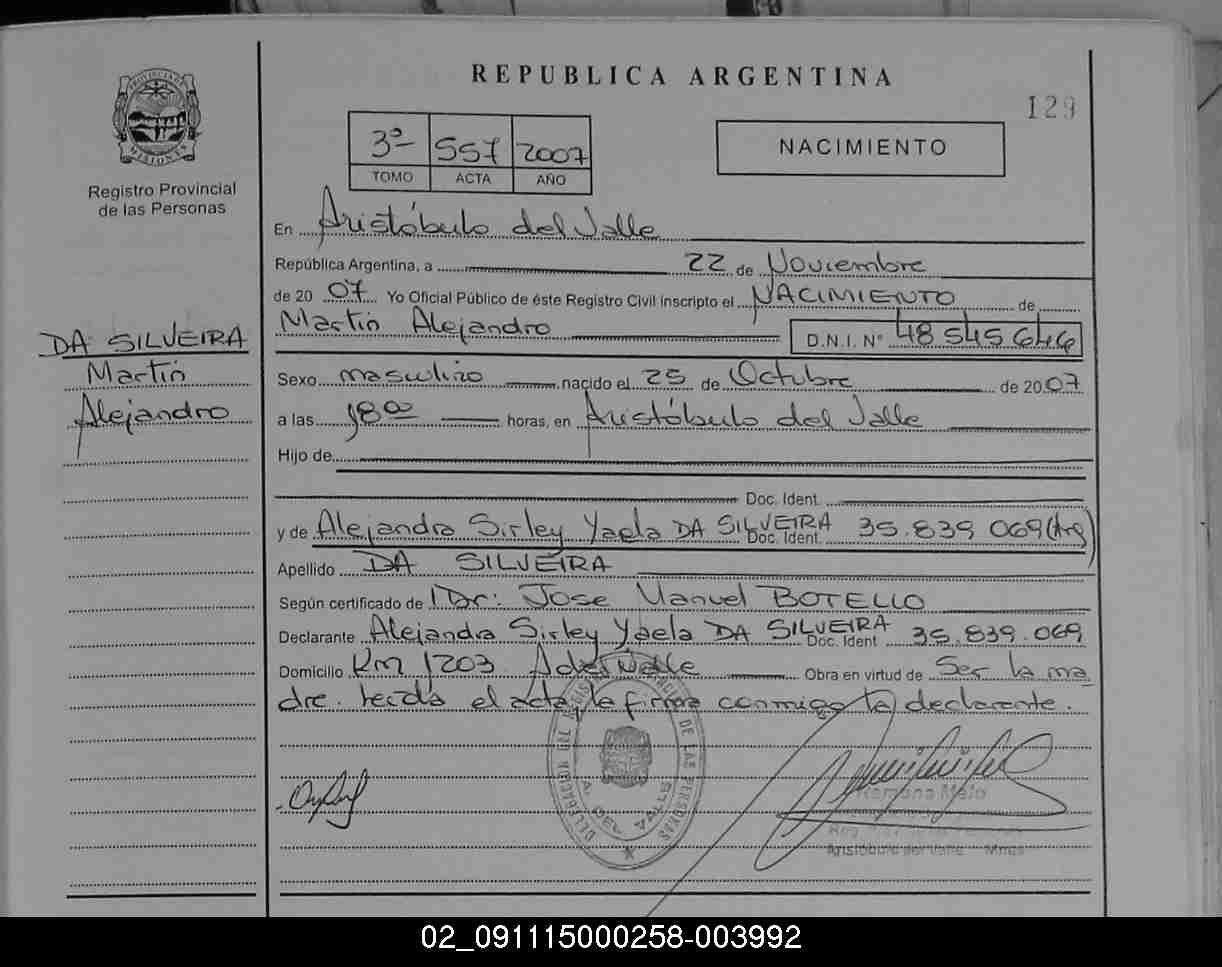 REPUBLICA ARGENTINA
129
PROVINCIA DE MISIONES
Registro Provincial
de las Personas
3º 557 2007
TOMO ACTA AÑO
NACIMIENTO
En Aristóbulo del Valle
República Argentina, a 22 de Noviembre
de 20 07 Yo Oficial Público de éste Registro Civil inscripto el NACIMIENTO de
Martín Alejandro D.N.I. Nº 48 545 646
DA SILVEIRA
Martín
Alejandro
Sexo masculino nacido el 25 de Octubre de 20 07
a las 18 00 horas, en Aristóbulo del Valle
Hijo de
Doc. Ident.
y de Alejandra Sirley Yaela DA SILVEIRA Doc. Ident. 35.839 069 (Arg)
Apellido DA SILVEIRA
Según certificado de Dr: Jose Manuel BOTELLO
Declarante Alejandra Sirley Yaela DA SILVEIRA Doc. Ident 35.839.069
Domicilio Km 1203 A del Valle Obra en virtud de Ser la ma
dre. leída el acta, la firma conmigo la declarante.
DELEGACION DEL REGISTRO PROVINCIAL DE LAS PERSONAS
A. DEL VALLE
Ramona Melo
Aristóbulo del Valle - Mnes
02_091115000258-003992